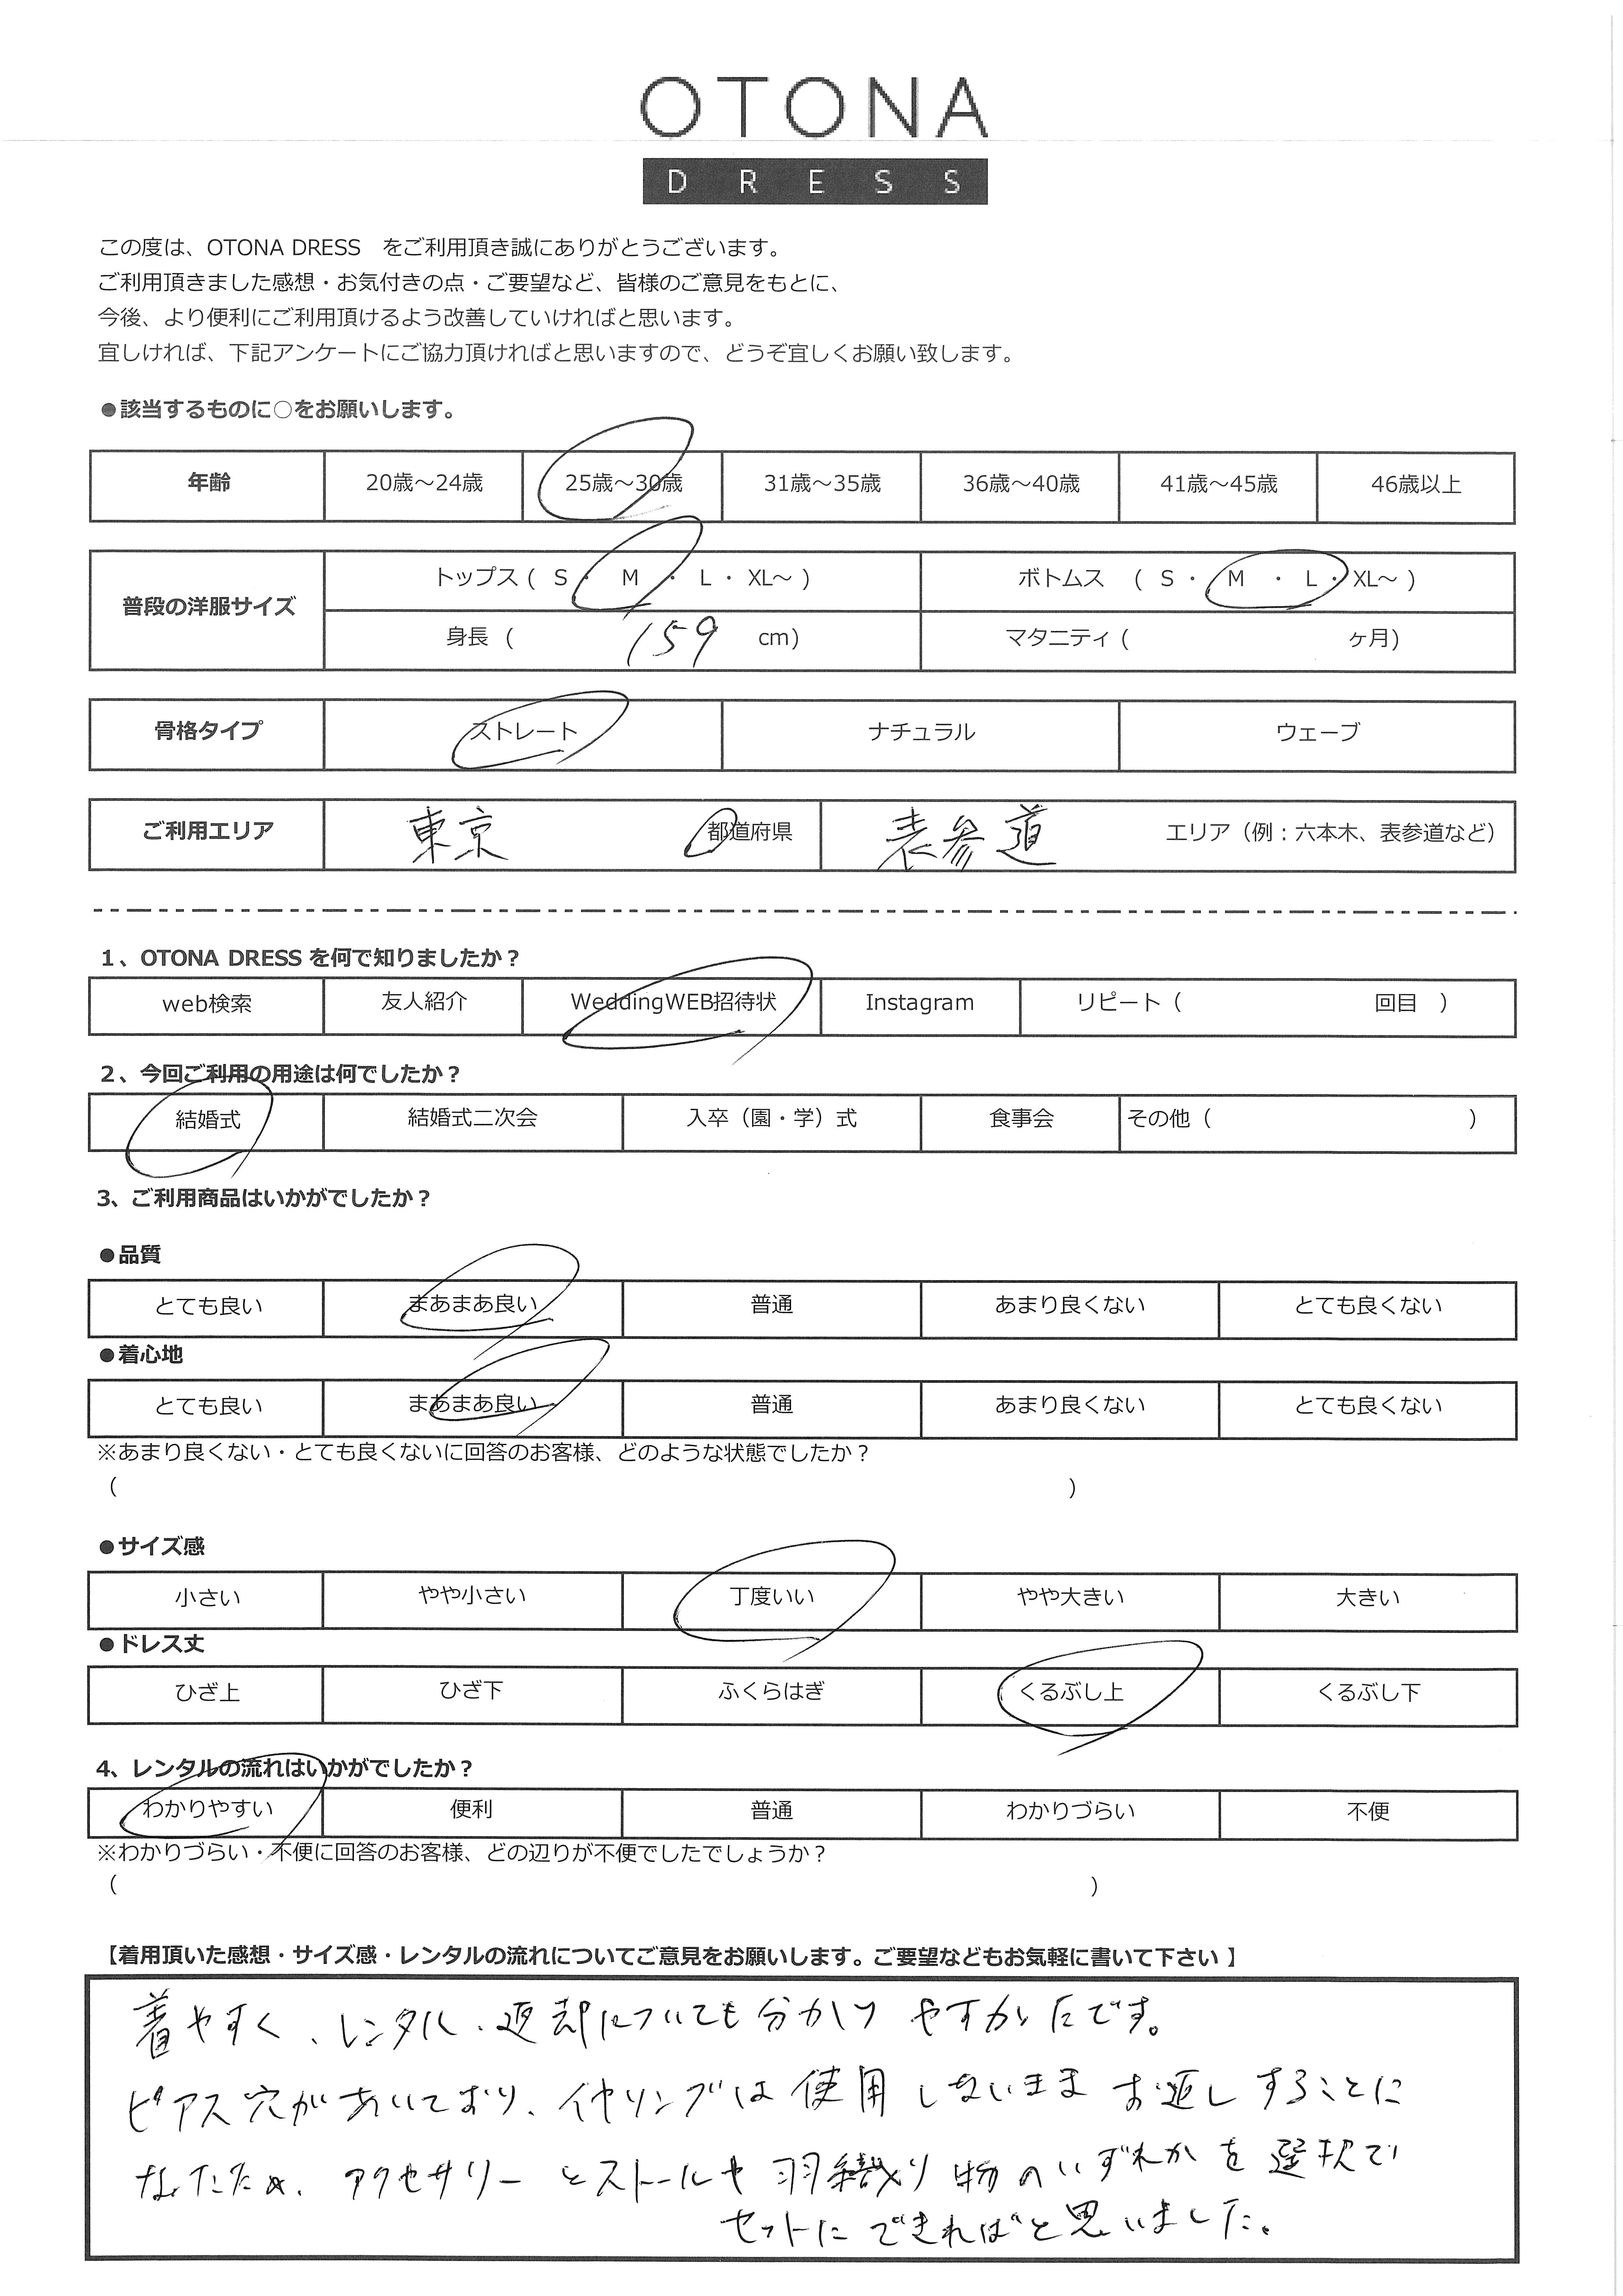 OTONA
DRESS
この度は、OTONA DRESS をご利用頂き誠にありがとうございます。
ご利用頂きました感想・お気付きの点・ご要望など、皆様のご意見をもとに、
今後、より便利にご利用頂けるよう改善していければと思います。
宜しければ、下記アンケートにご協力頂ければと思いますので、どうぞ宜しくお願い致します。
●該当するものに○をお願いします。
年齢 20歳～24歳 25歳～30歳 31歳～35歳 36歳～40歳 41歳～45歳 46歳以上
普段の洋服サイズ トップス ( S ・ M ・ L ・ XL～ ) ボトムス ( S ・ M ・ L ・ XL～ )
身長 ( 159 cm) マタニティ ( ヶ月)
骨格タイプ ストレート ナチュラル ウェーブ
ご利用エリア 東京 都道府県 表参道 エリア（例：六本木、表参道など）
1、OTONA DRESS を何で知りましたか？
web検索 友人紹介 WeddingWEB招待状 Instagram リピート（ 回目 ）
2、今回ご利用の用途は何でしたか？
結婚式 結婚式二次会 入卒（園・学）式 食事会 その他（ ）
3、ご利用商品はいかがでしたか？
●品質
とても良い まあまあ良い 普通 あまり良くない とても良くない
●着心地
とても良い まあまあ良い 普通 あまり良くない とても良くない
※あまり良くない・とても良くないに回答のお客様、どのような状態でしたか？
（ ）
●サイズ感
小さい やや小さい 丁度いい やや大きい 大きい
●ドレス丈
ひざ上 ひざ下 ふくらはぎ くるぶし上 くるぶし下
4、レンタルの流れはいかがでしたか？
わかりやすい 便利 普通 わかりづらい 不便
※わかりづらい・不便に回答のお客様、どの辺りが不便でしたでしょうか？
（ ）
【着用頂いた感想・サイズ感・レンタルの流れについてご意見をお願いします。ご要望などもお気軽に書いて下さい 】
着やすく、レンタル、返却についても分かりやすかったです。
ピアス穴があいており、イヤリングは使用しないままお返しすることに
なったため、アクセサリーとストールや羽織り物のいずれかを選択で
セットにできればと思いました。